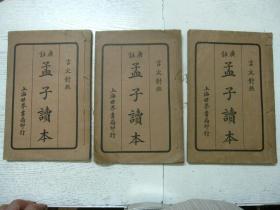 言文對照
廣註
孟子讀本
上海世界書局印行
言文對照
廣註
孟子讀本
上海世界書局印行
言文對照
廣註
孟子讀本
上海世界書局印行